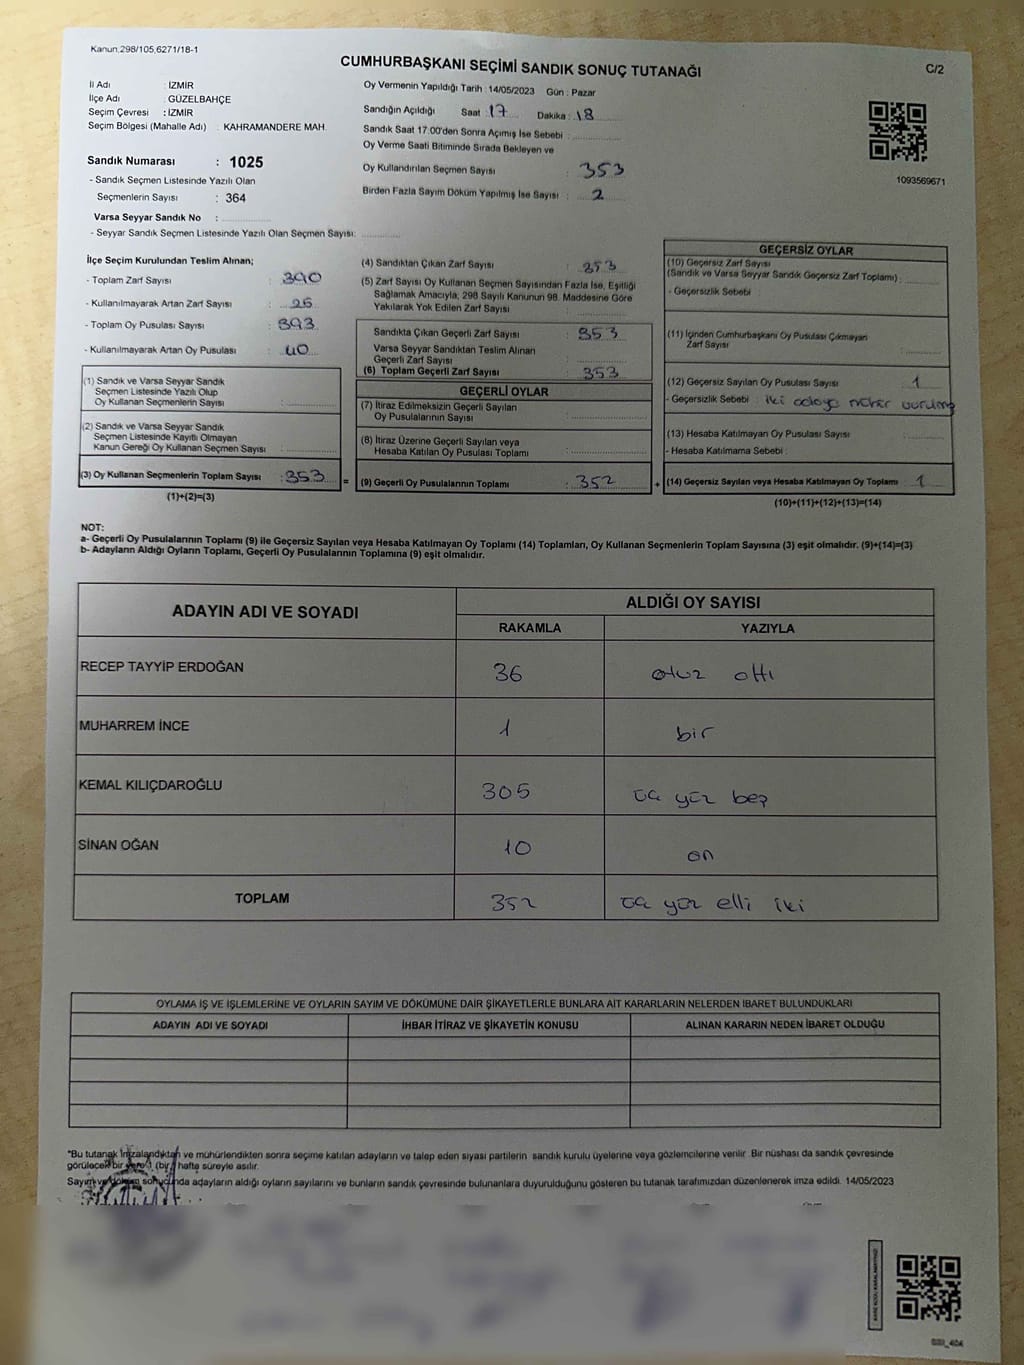 Kanun,298/105,6271/18-1
CUMHURBAŞKANI SEÇİMİ SANDIK SONUÇ TUTANAĞI
C/2
İl Adı : İZMİR
İlçe Adı : GÜZELBAHÇE
Seçim Çevresi : İZMİR
Seçim Bölgesi (Mahalle Adı) : KAHRAMANDERE MAH.
Sandık Numarası : 1025
- Sandık Seçmen Listesinde Yazılı Olan
Seçmenlerin Sayısı : 364
Varsa Seyyar Sandık No :
- Seyyar Sandık Seçmen Listesinde Yazılı Olan Seçmen Sayısı:
Oy Vermenin Yapıldığı Tarih : 14/05/2023 Gün : Pazar
Sandığın Açıldığı Saat : 17 Dakika : 18
Sandık Saat 17.00'den Sonra Açımış İse Sebebi :
Oy Verme Saati Bitiminde Sırada Bekleyen ve
Oy Kullandırılan Seçmen Sayısı : 353
Birden Fazla Sayım Döküm Yapılmış İse Sayısı : 2
1093569671
İlçe Seçim Kurulundan Teslim Alınan;
- Toplam Zarf Sayısı : 390
- Kullanılmayarak Artan Zarf Sayısı : 26
- Toplam Oy Pusulası Sayısı : 393
- Kullanılmayarak Artan Oy Pusulası : 40
(1) Sandık ve Varsa Seyyar Sandık
Seçmen Listesinde Yazılı Olup
Oy Kullanan Seçmenlerin Sayısı :
(2) Sandık ve Varsa Seyyar Sandık
Seçmen Listesinde Kayıtlı Olmayan
Kanun Gereği Oy Kullanan Seçmen Sayısı :
(3) Oy Kullanan Seçmenlerin Toplam Sayısı : 353
(1)+(2)=(3)
=
(4) Sandıktan Çıkan Zarf Sayısı : 353
(5) Zarf Sayısı Oy Kullanan Seçmen Sayısından Fazla İse, Eşitliği
Sağlamak Amacıyla; 298 Sayılı Kanunun 98. Maddesine Göre
Yakılarak Yok Edilen Zarf Sayısı :
Sandıkta Çıkan Geçerli Zarf Sayısı : 353
Varsa Seyyar Sandıktan Teslim Alınan
Geçerli Zarf Sayısı :
(6) Toplam Geçerli Zarf Sayısı : 353
GEÇERLİ OYLAR
(7) İtiraz Edilmeksizin Geçerli Sayılan
Oy Pusulalarının Sayısı :
(8) İtiraz Üzerine Geçerli Sayılan veya
Hesaba Katılan Oy Pusulası Toplamı :
(9) Geçerli Oy Pusulalarının Toplamı : 352
+
GEÇERSİZ OYLAR
(10) Geçersiz Zarf Sayısı
(Sandık ve Varsa Seyyar Sandık Geçersiz Zarf Toplamı) :
- Geçersizlik Sebebi :
(11) İçinden Cumhurbaşkanı Oy Pusulası Çıkmayan
Zarf Sayısı :
(12) Geçersiz Sayılan Oy Pusulası Sayısı : 1
- Geçersizlik Sebebi : iki adaya mühür
(13) Hesaba Katılmayan Oy Pusulası Sayısı :
- Hesaba Katılmama Sebebi :
(14) Geçersiz Sayılan veya Hesaba Katılmayan Oy Toplamı : 1
(10)+(11)+(12)+(13)=(14)
NOT:
a- Geçerli Oy Pusulalarının Toplamı (9) ile Geçersiz Sayılan veya Hesaba Katılmayan Oy Toplamı (14) Toplamları, Oy Kullanan Seçmenlerin Toplam Sayısına (3) eşit olmalıdır. (9)+(14)=(3)
b- Adayların Aldığı Oyların Toplamı, Geçerli Oy Pusulalarının Toplamına (9) eşit olmalıdır.
ADAYIN ADI VE SOYADI
ALDIĞI OY SAYISI
RAKAMLA YAZIYLA
RECEP TAYYİP ERDOĞAN 36 otuz altı
MUHARREM İNCE 1 bir
KEMAL KILIÇDAROĞLU 305 üç yüz beş
SİNAN OĞAN 10 on
TOPLAM 352 üç yüz elli iki
OYLAMA İŞ VE İŞLEMLERİNE VE OYLARIN SAYIM VE DÖKÜMÜNE DAİR ŞİKAYETLERLE BUNLARA AİT KARARLARIN NELERDEN İBARET BULUNDUKLARI
ADAYIN ADI VE SOYADI İHBAR İTİRAZ VE ŞİKAYETİN KONUSU ALINAN KARARIN NEDEN İBARET OLDUĞU
*Bu tutanak İmzalandıktan ve mühürlendikten sonra seçime katılan adayların ve talep eden siyasi partilerin sandık kurulu üyelerine veya gözlemcilerine verilir. Bir nüshası da sandık çevresinde
görülecek bir yere 1 (bir) hafta süreyle asılır.
Sayım ve döküm sonucunda adayların aldığı oyların sayılarını ve bunların sandık çevresinde bulunanlara duyurulduğunu gösteren bu tutanak tarafımızdan düzenlenerek imza edildi. 14/05/2023